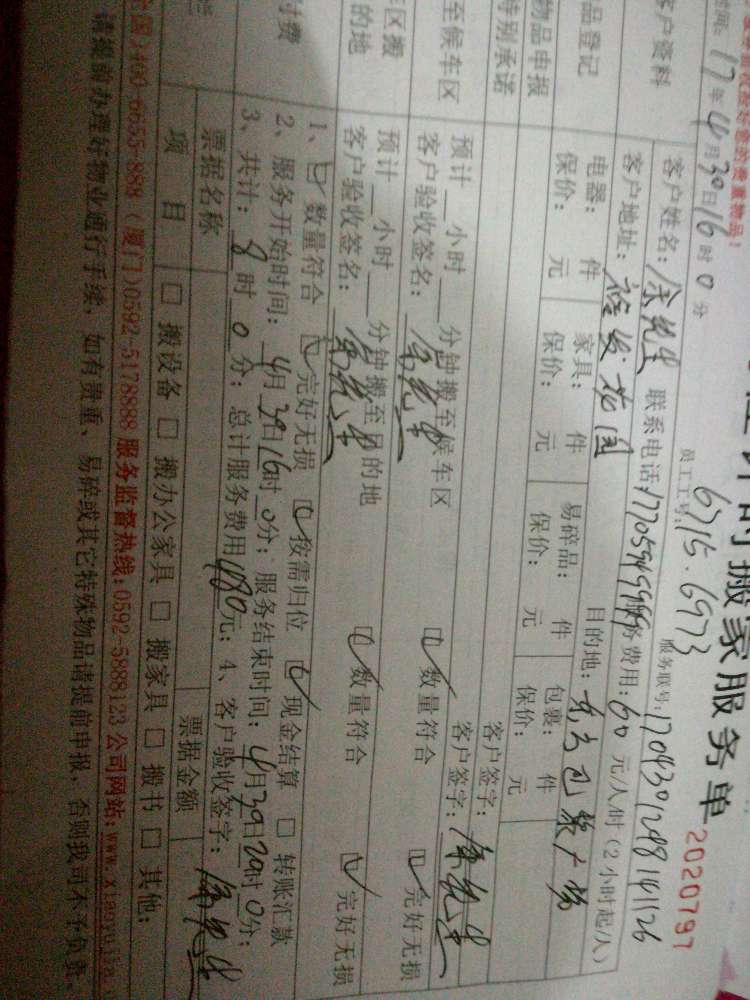 时搬家服务单 2020797
员工工号: 6715.6973 服务联号: 170430124814 1126
时间: 17年4月30日16时0分
客户资料 客户姓名: 余先生 联系电话: 服务费用: 60 元/人/时 (2小时起/人)
客户地址: 花园 目的地: 广场
品登记 电器: 件 家具: 件 易碎品: 件 包裹: 件
保价: 元 保价: 元 保价: 元 保价: 元
物品申报 客户签字:
特别承诺 客户签字: 余先生
至候车区 预计 小时 分钟搬至候车区 数量符合 完好无损
客户验收签名: 余先生
区搬 预计 小时 分钟搬至目的地 数量符合 完好无损
的地 客户验收签名: 余先生
1、 数量符合 完好无损 按需归位 现金结算 □ 转账汇款
付费 2、服务开始时间: 4月30日16时0分; 服务结束时间: 4月30日20时0分;
3、共计: 8时0分; 总计服务费用 480元; 4、客户验收签字: 余先生
票据名称 票据金额
项目 □ 搬设备 □ 搬办公家具 □ 搬家具 □ 搬书 □ 其他:
全国)400-6655-888 (厦门)0592-5178888 服务监督热线:0592-5888123 公司网站:www.xiaoyujia.
请提前办理好物业通行手续, 如有贵重、易碎或其它特殊物品请提前申报, 否则我司不予负责。